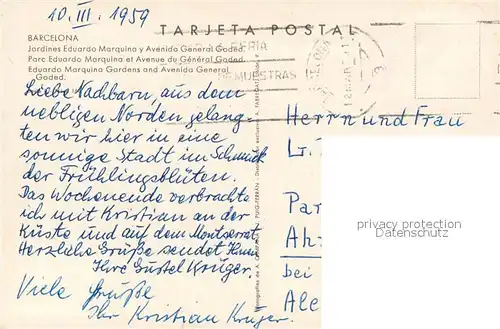 10. III. 1959
TARJETA POSTAL
BARCELONA
Jardines Eduardo Marquina y Avenida General Goded.
Parc Eduardo Marquina et Avenue du Général Goded.
Eduardo Marquina Gardens and Avenida General
Goded.
MUESTRAS
Liebe Nachbarn, aus dem
nebligen Norden gelang-
ten wir hier in eine
sonnige Stadt im Schmuck
der Frühlingsblüten.
Das Wochenende verbrachte
ich mit Kristian an der
Küste und auf dem Montserrat
Herzliche Grüße sendet Ihnen
Ihre Gustel Krüger.
Viele Grüße
Ihr Kristian Krüger.
Herrn und Frau
L
Par
Ah
bei
Ale
privacy protection
Datenschutz